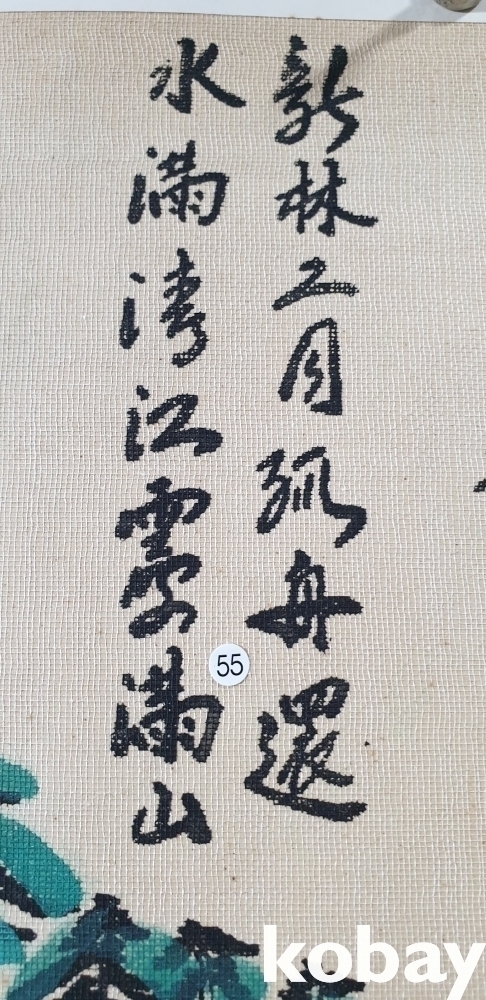 新林二月孤舟還
水滿淸江花滿山
55
kobay